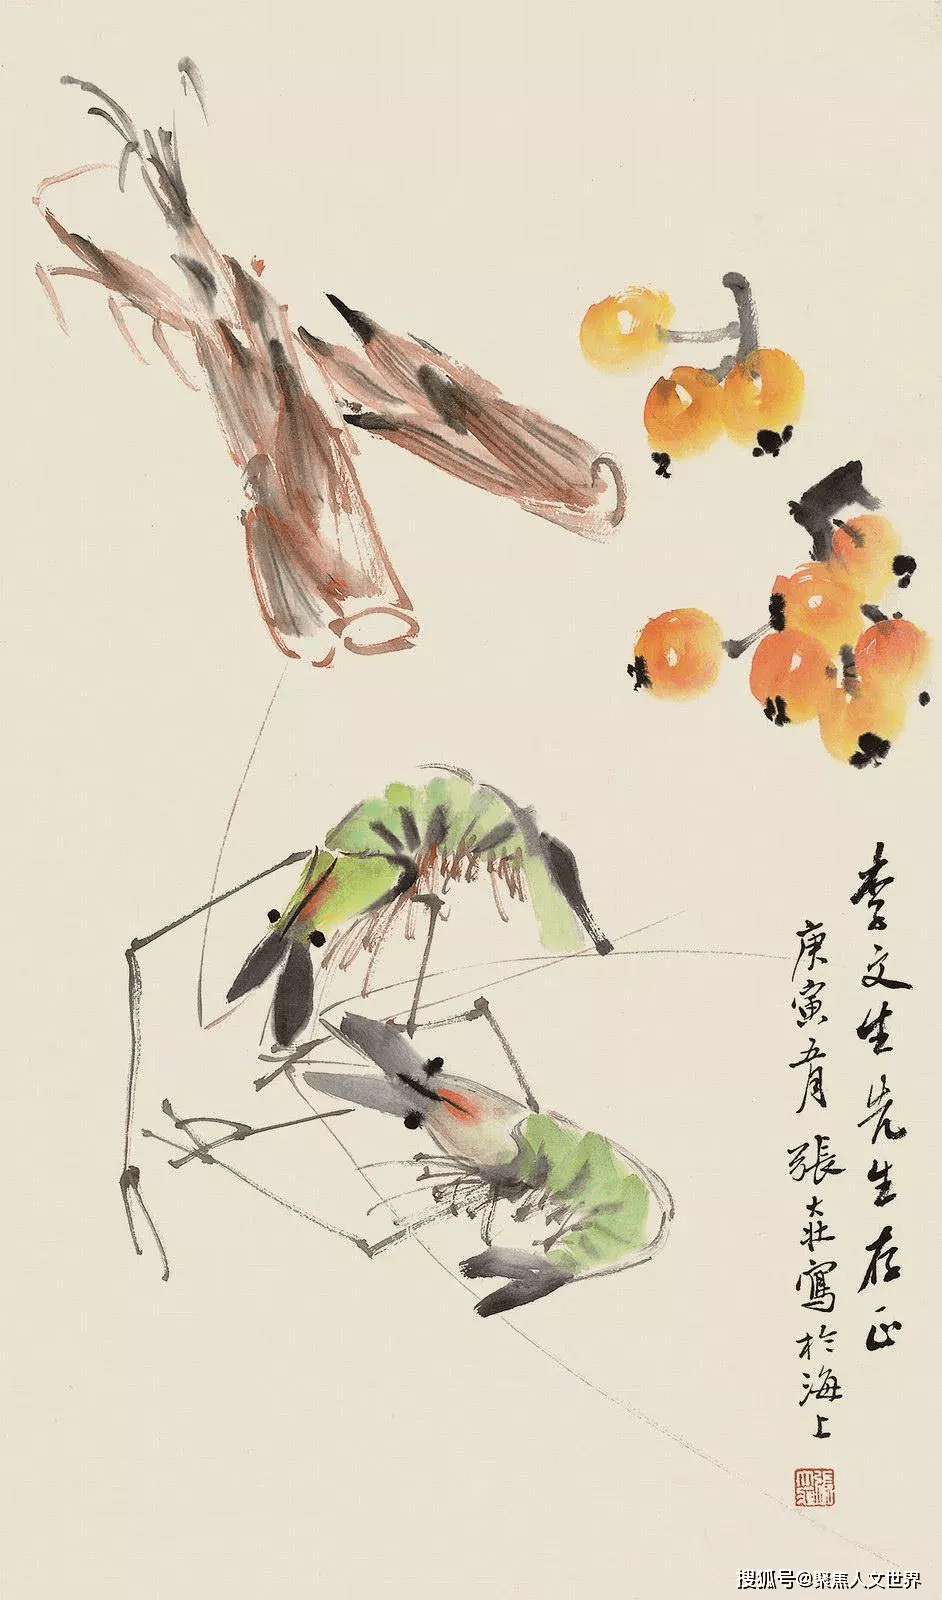 李文生先生存正
庚寅五月 張大壯寫於海上
搜狐号@聚焦人文世界